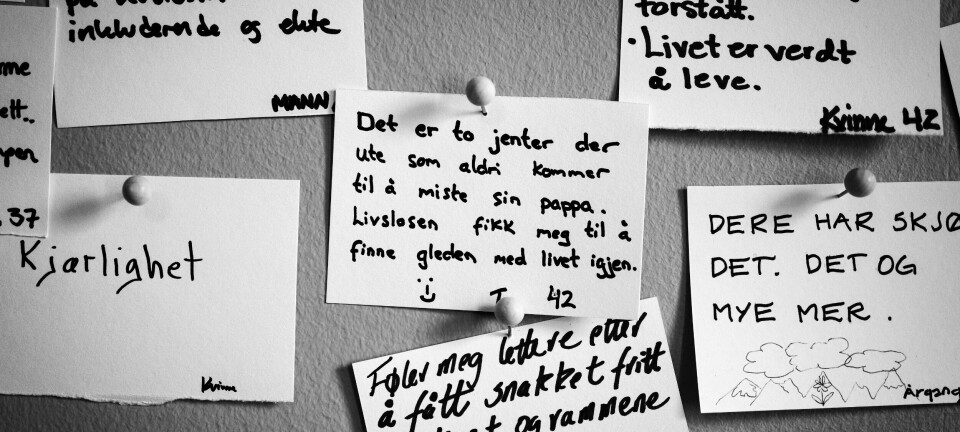 inkluderende og ekte
MANN.
forstått.
· Livet er verdt
å leve.
Kvinne 42
ett..
37
Kjærlighet
Kvinne
Det er to jenter der
ute som aldri kommer
til å miste sin pappa.
Livsløsen fikk meg til å
finne gleden med livet igjen.
42
Føler meg lettere etter
å fått snakket fritt
og rammene
DERE HAR SKJØ
DET. DET OG
MYE MER.
Årgang